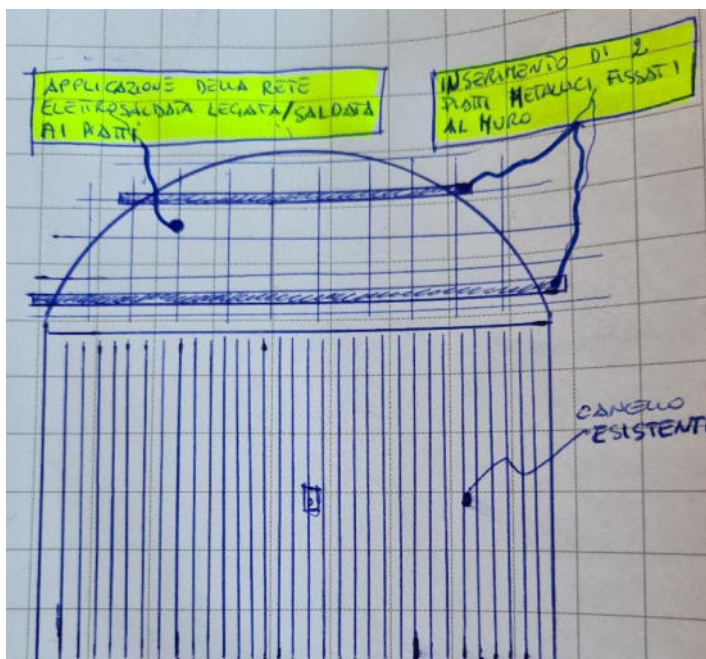 APPLICAZIONE DELLA RETE
ELETTROSALDATA LEGATA/SALDATA
AI PIATTI
INSERIMENTO DI 2
PIATTI METALLICI FISSATI
AL MURO
CANCELLO
ESISTENTE